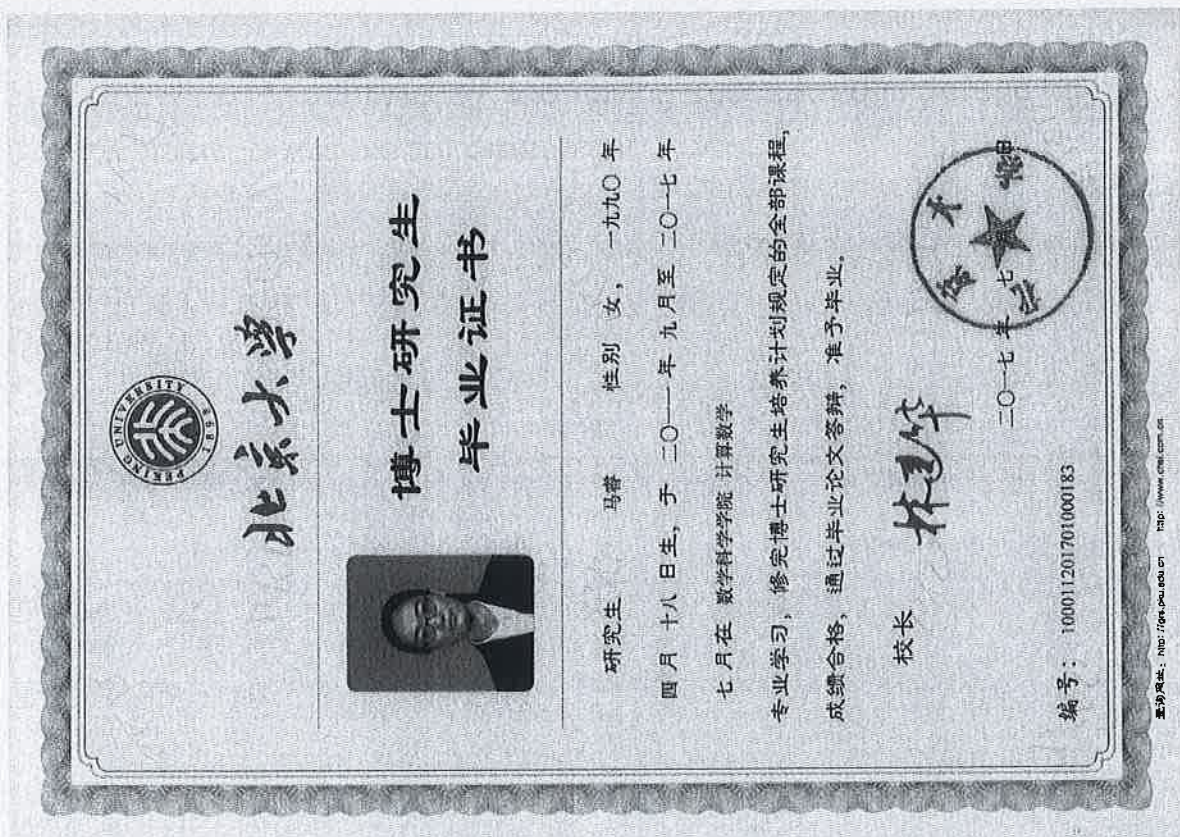 PEKING UNIVERSITY 1898
北京大学
博士研究生
毕业证书
研究生 马睿 性别 女，一九九〇 年
四 月 十八 日生，于 二〇一一 年 九 月至 二〇一七 年
七 月在 数学科学学院 计算数学
专业学习，修完博士研究生培养计划规定的全部课程，
成绩合格，通过毕业论文答辩，准予毕业。
校长 林建华
二〇一七 年 七 日
编号： 100011201701000183
查询网址： http://grs.pku.edu.cn http://www.chsi.com.cn